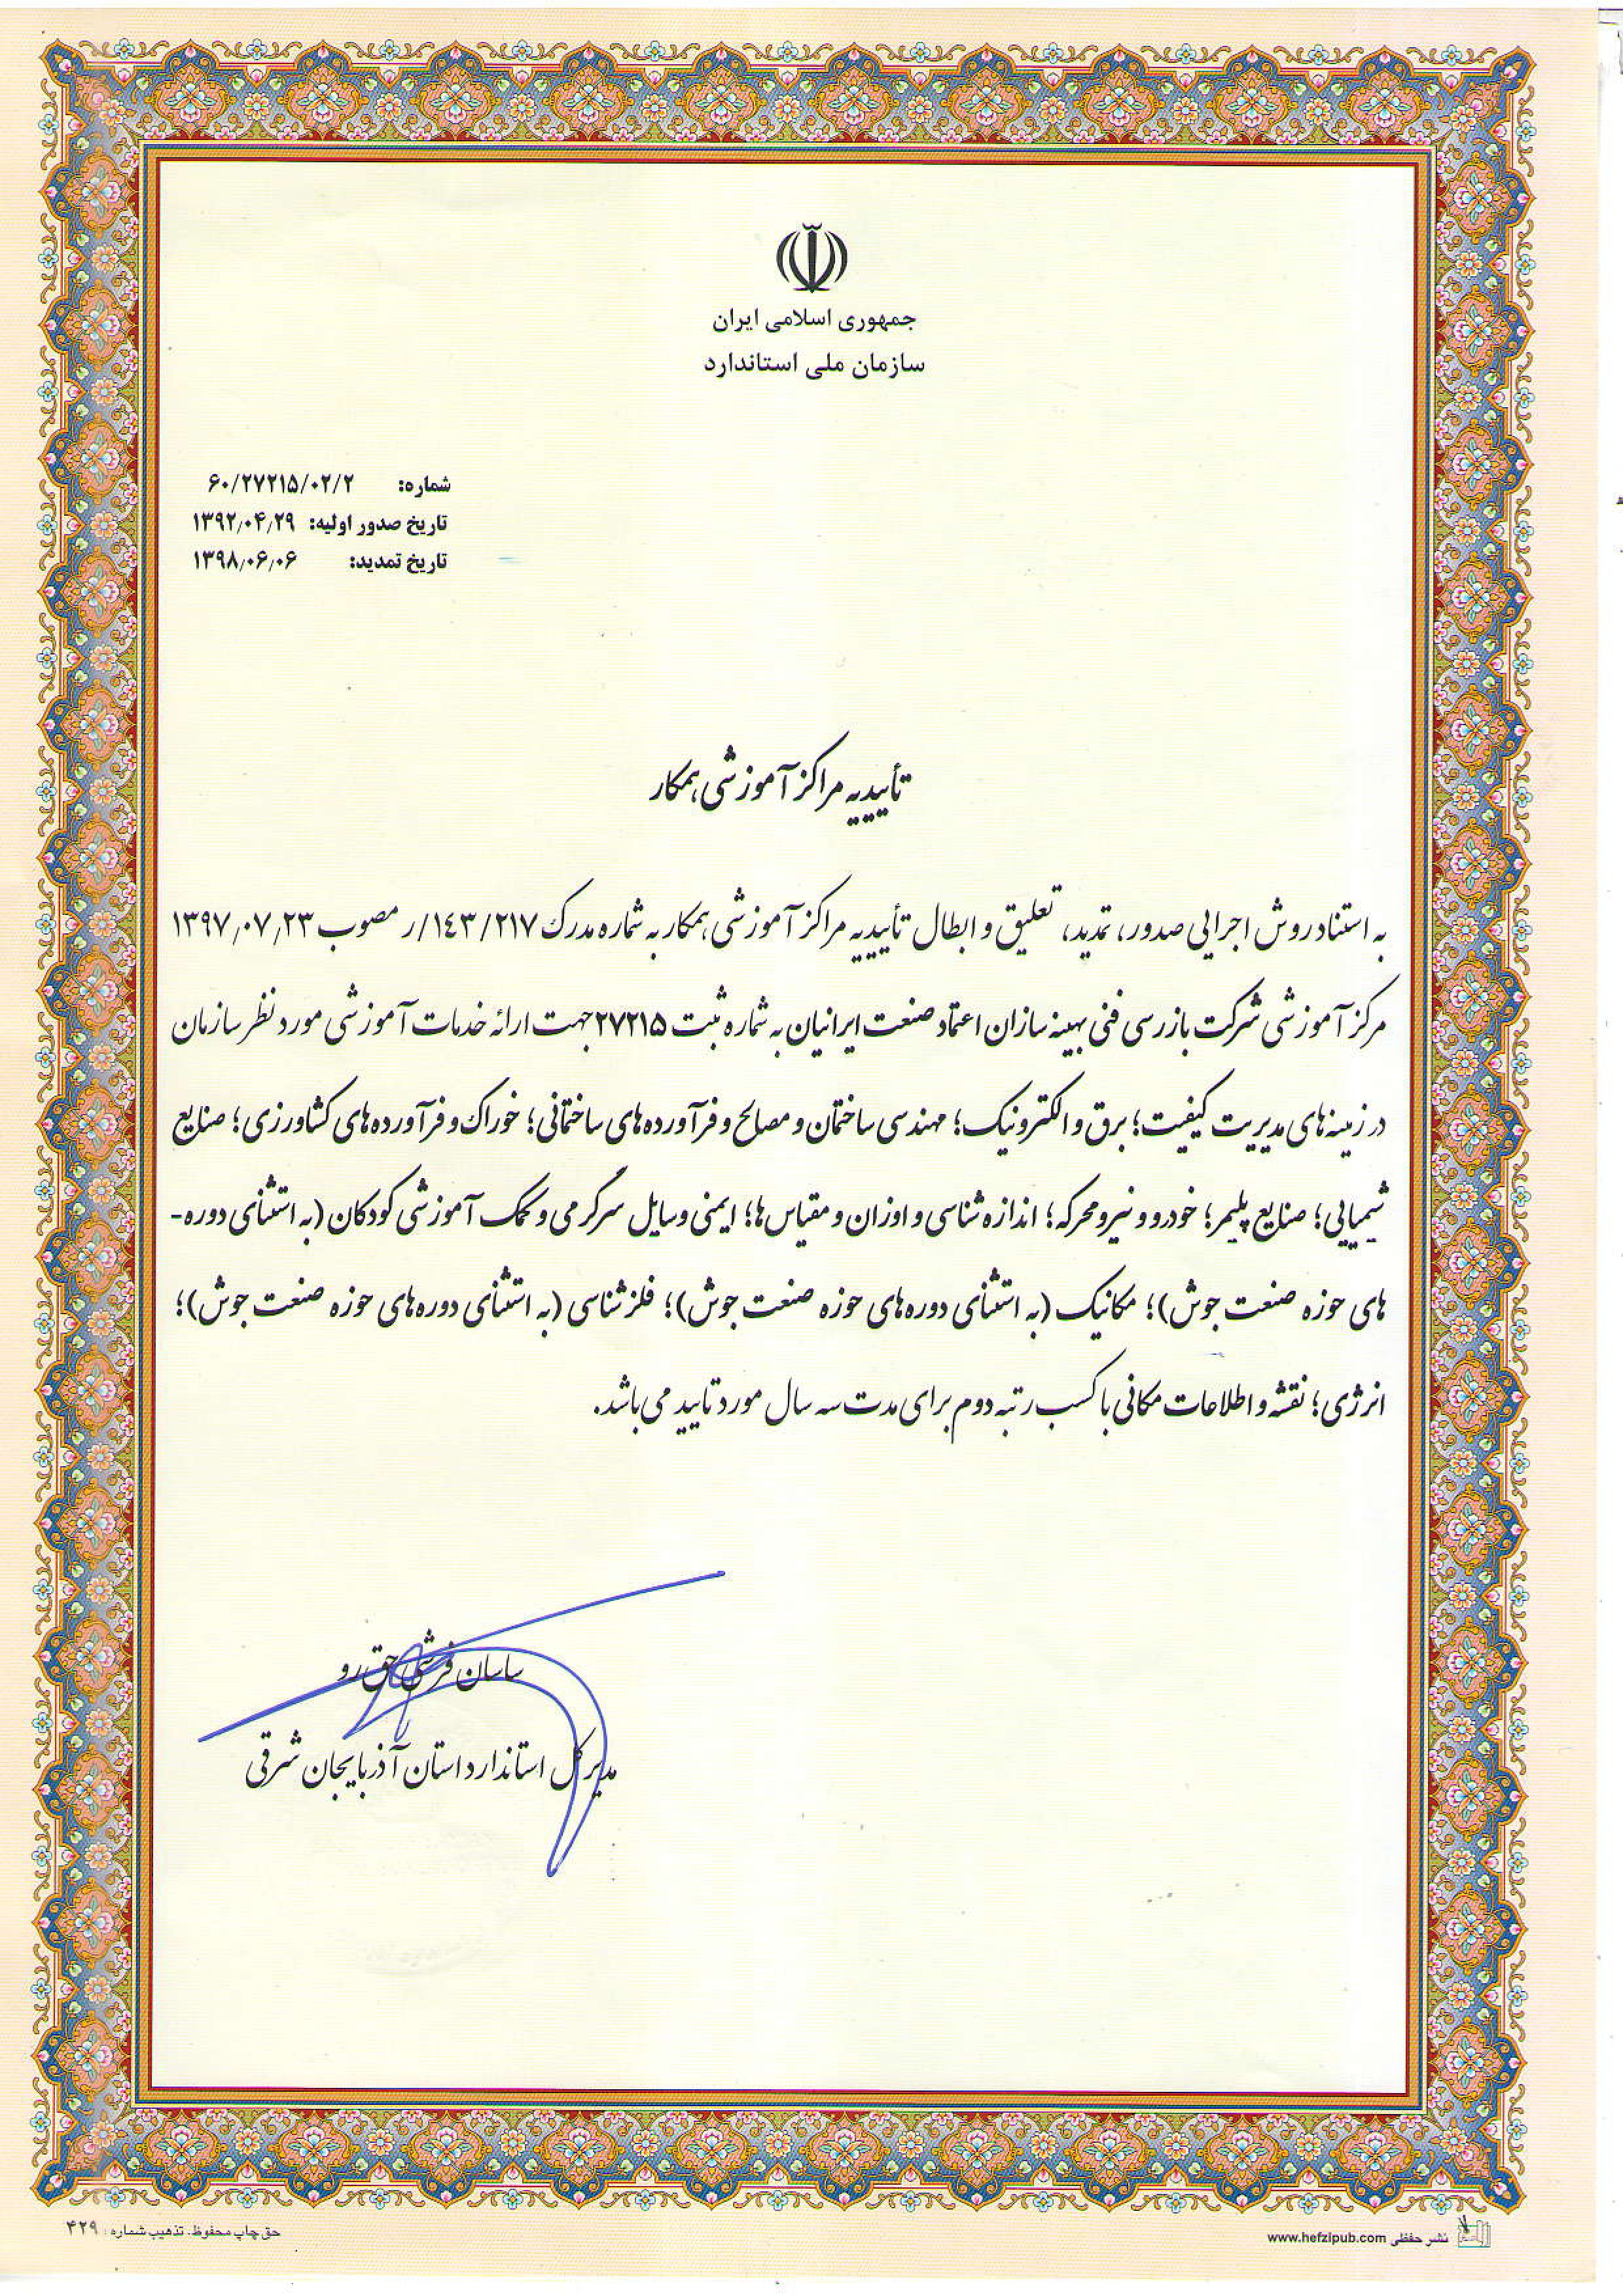 جمهوری اسلامی ایران
سازمان ملی استاندارد
شماره: ۶۰/۲۷۲۱۵/۰۲/۲
تاریخ صدور اولیه: ۱۳۹۲٫۰۴٫۲۹
تاریخ تمدید: ۱۳۹۸٫۰۶٫۰۶
تأییدیه مراکز آموزشی همکار
به استناد روش اجرایی صدور، تمدید، تعلیق و ابطال تأییدیه مراکز آموزشی همکار به شماره مدرک ۱۴۳/۲۱۷/ر مصوب ۱۳۹۷٫۰۷٫۲۳
مرکز آموزشی شرکت بازرسی فنی بهینه سازان اعتماد صنعت ایرانیان به شماره ثبت ۲۷۲۱۵ جهت ارائه خدمات آموزشی مورد نظر سازمان
در زمینه های مدیریت کیفیت؛ برق و الکترونیک؛ مهندسی ساختمان و مصالح و فرآورده های ساختمانی؛ خوراک و فرآورده های کشاورزی؛ صنایع
شیمیایی؛ صنایع پلیمر؛ خودرو و نیرو محرکه؛ اندازه شناسی و اوزان و مقیاس ها؛ ایمنی وسایل سرگرمی و کمک آموزشی کودکان (به استثنای دوره-
های حوزه صنعت جوش)؛ مکانیک (به استثنای دوره های حوزه صنعت جوش)؛ فلزشناسی (به استثنای دوره های حوزه صنعت جوش)؛
انرژی؛ نقشه و اطلاعات مکانی با کسب رتبه دوم برای مدت سه سال مورد تایید می باشد.
ساسان فرشی حق رو
مدیر کل استاندارد استان آذربایجان شرقی
نشر حفظی www.hefzipub.com
حق چاپ محفوظ. تذهیب شماره: ۴۲۹